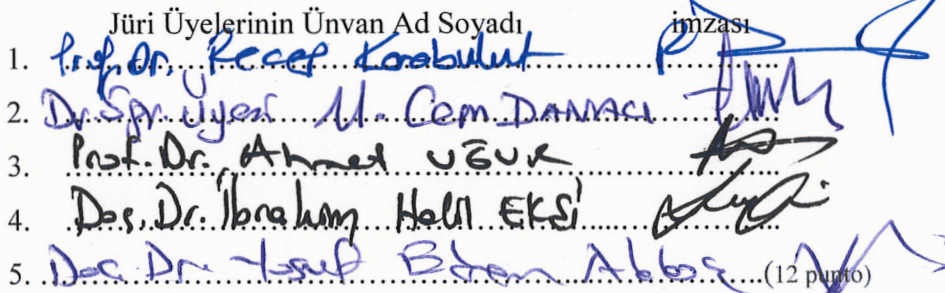 Jüri Üyelerinin Ünvan Ad Soyadı imzası
1. Prof. Dr. Recep Karabulut
2. Dr. Öğr. Üyesi M. Cem DANACI
3. Prof. Dr. Ahmet UĞUR
4. Doç. Dr. İbrahim Halil EKŞİ
5. Doç. Dr. Yusuf (12 punto)